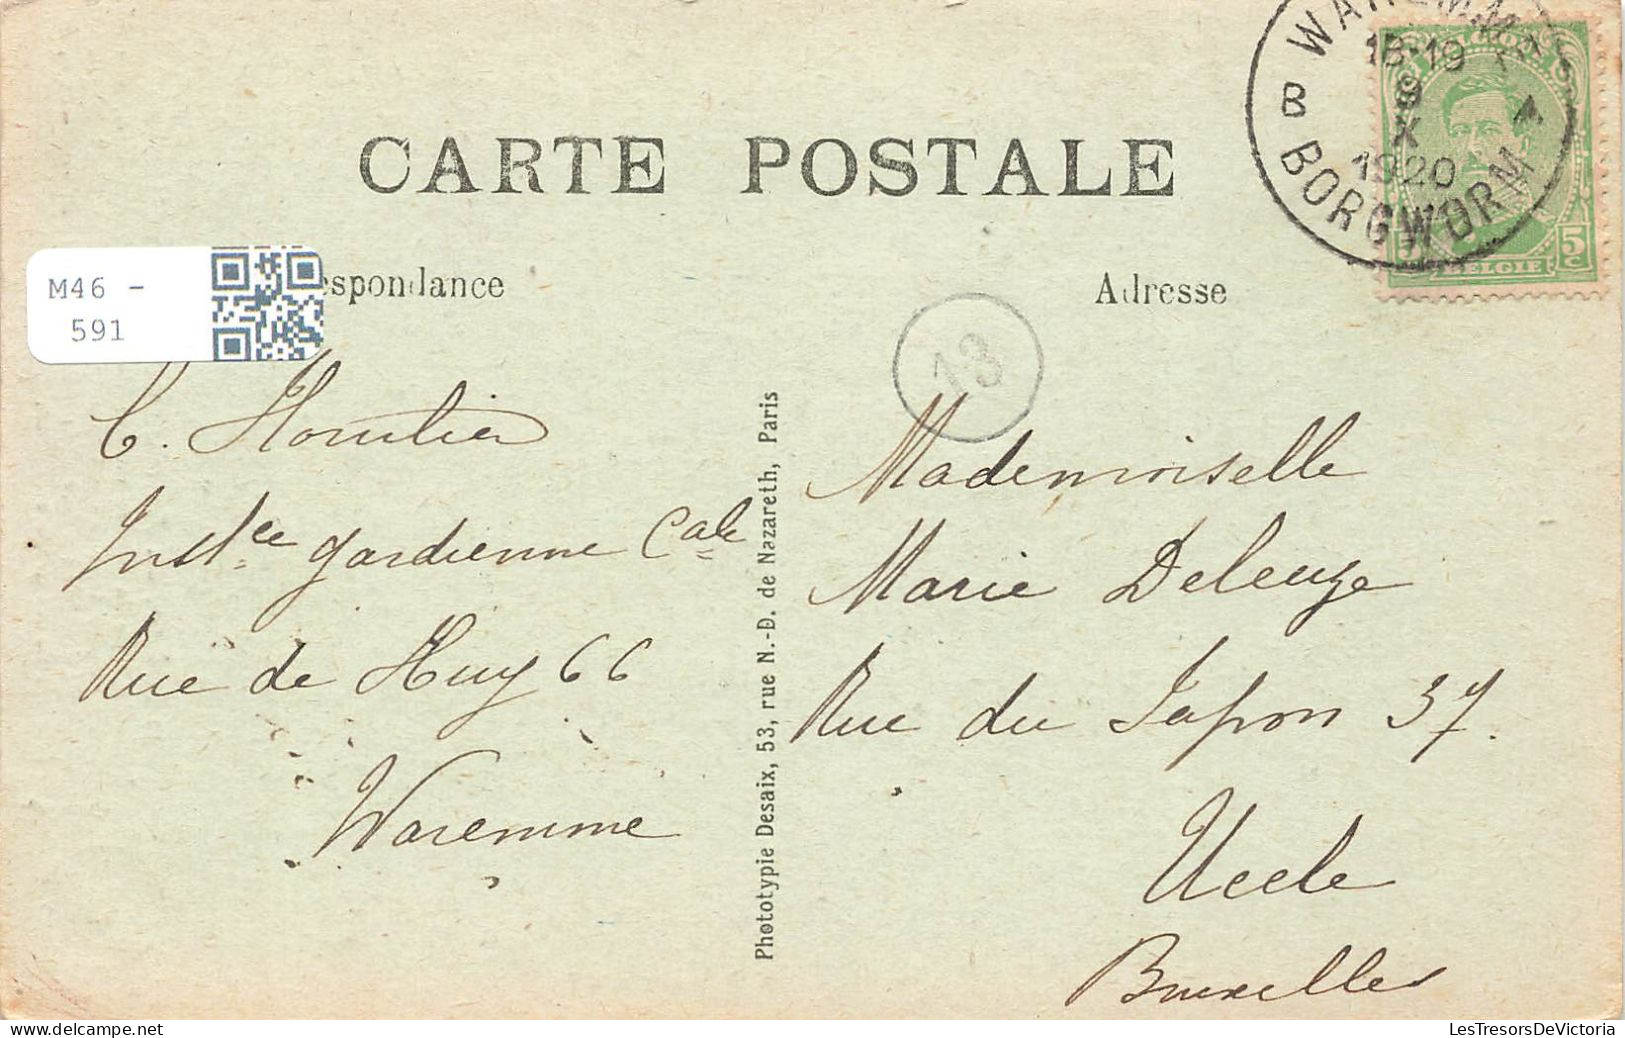 CARTE POSTALE
WAREMME
18-19
9
X
1920
B
BORGWORM
BELGIE
5
M46 -
591
espondance
Adresse
13
Phototypie Desaix, 53, rue N.-D. de Nazareth, Paris
Inst.ce gardienne Cale
Rue de Huy 66
Waremme
Mademoiselle
Marie Deleuze
Rue du Japon 37.
Uccle
Bruxelles
LesTresorsDeVictoria